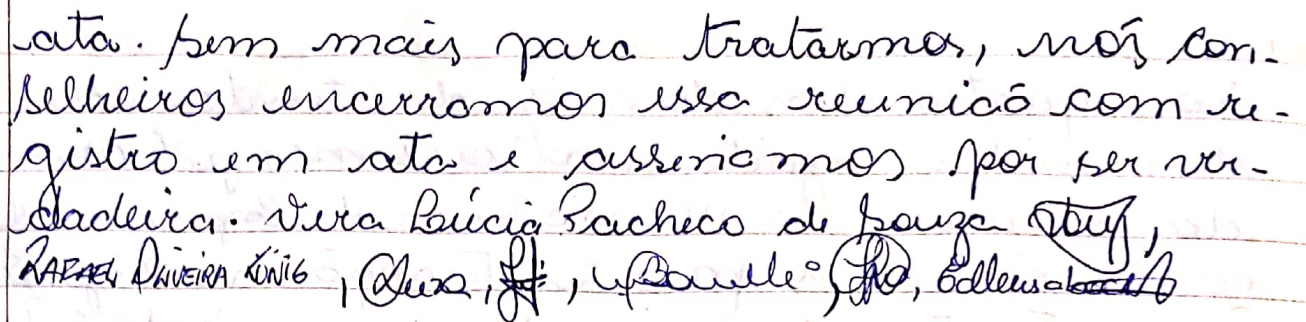 ata. Sem mais para tratarmos, nós con-
selheiros encerramos essa reunião com re-
gistro em ata e assinamos por ser ver-
dadeira. Vera Lúcia Pacheco de Souza
RAFAEL OLIVEIRA KÖNIG